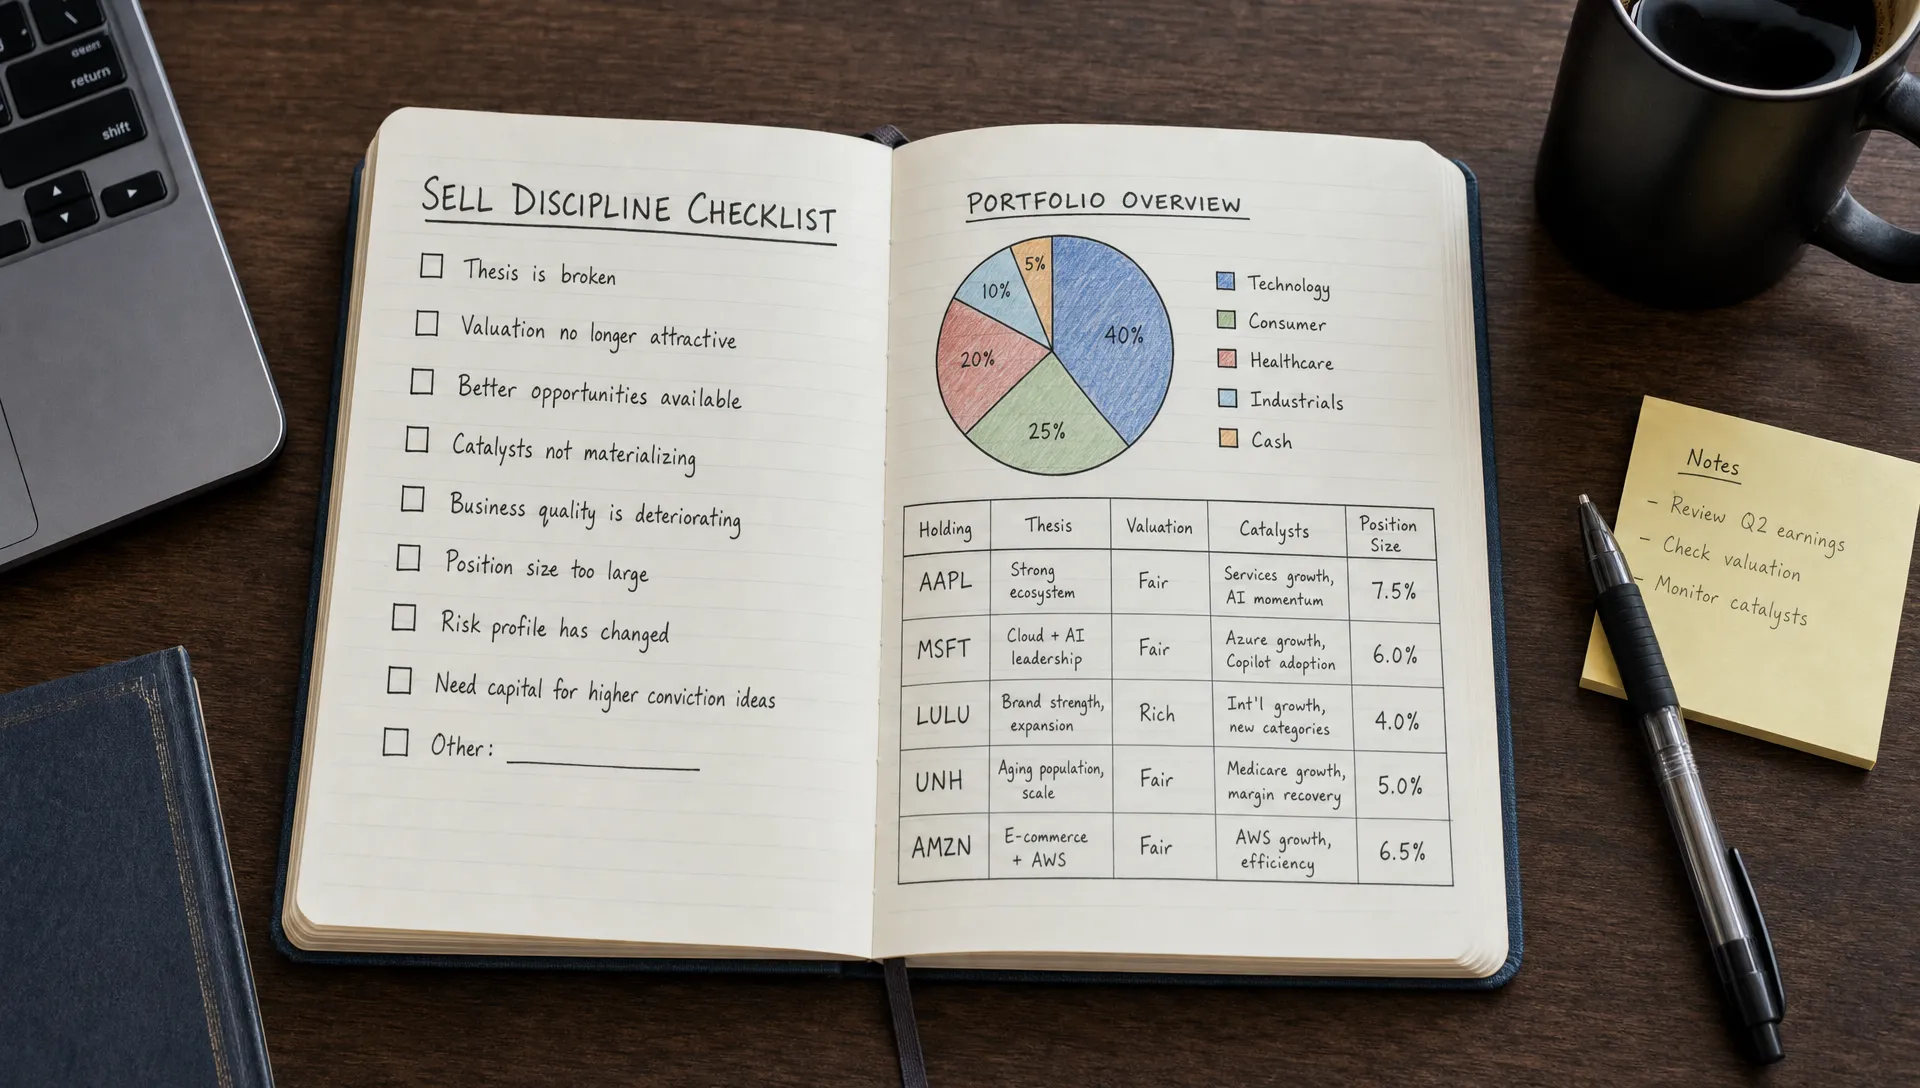 return
shift
SELL DISCIPLINE CHECKLIST
Thesis is broken
Valuation no longer attractive
Better opportunities available
Catalysts not materializing
Business quality is deteriorating
Position size too large
Risk profile has changed
Need capital for higher conviction ideas
Other:
PORTFOLIO OVERVIEW
5%
10%
40%
20%
25%
Technology
Consumer
Healthcare
Industrials
Cash
Holding Thesis Valuation Catalysts Position
Size
AAPL Strong Fair Services growth, 7.5%
ecosystem AI momentum
MSFT Cloud + AI Fair Azure growth, 6.0%
leadership Copilot adoption
LULU Brand strength, Rich Int'l growth, 4.0%
expansion new categories
UNH Aging population, Fair Medicare growth, 5.0%
scale margin recovery
AMZN E-commerce Fair AWS growth, 6.5%
+ AWS efficiency
Notes
- Review Q2 earnings
- Check valuation
- Monitor catalysts